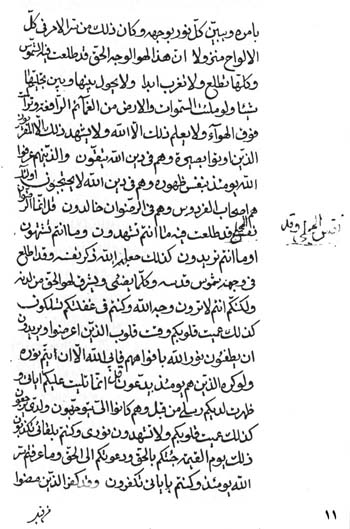 بامره ويبين كل نور بوجهه وكان ذلك من نزلا لامر فى كل
الالواح منزولا ان هذا لهو الوجه الحق قد طلعت فيه الشموس
وكلها تطلع ولا تغرب ابدا ولا يحول بينها وبين تجليها
شيئا ولو ملئت السموات والارض من الغمائم الرافعة وتراكمت
فوق الهوآء ولا يعلم ذلك الا الله ولا يشهد ذلك الا المقربون
الذين اوتوا بصيرة وهم فى دين الله يتقون والذينهم عرفوا
الله يومئذ بنفس ظهوره وهم فى دين الله لا يحتجبون اولئك
هم اصحاب الفردوس وهم فى الرضوان خالدون قل انما الرضوان
نفسى قد طلعت فيه ما انتم تشهدون وما انتم تشتهون
او ما انتم تريدون كذلك جعلهم الله ذكر نفسه وقد اطلع
فى وجهه شموس قدسه وكلها يضئى ويشرق لهو الحق من اذنه
ولكنكم انتم لا ترون وجه الله وكنتم فى غفلتكم تسلكون
كذلك عميت قلوبكم وقست قلوب الذين اعرضوا ويريدون
ان يطفئون نور الله بافواههم فابى الله الا ان يتم نوره
ولو كره الذين هم يومئذ يدعون قل انما تليت عليكم اياتى و
ظهرت لديكم رسلى من قبل وهم كانوا الى توجهون ولدى يرجعون
كذلك عميت قلوبكم ولا تشهدون نورى وكنتم بلقائى تكذبون
ذلك يوم الفتن جئتكم بالحق ودعوتكم الى الحق وما عرفتم
الله يومئذ وكنتم باياتى تكفرون وقد كفر الذين مضوا
١١